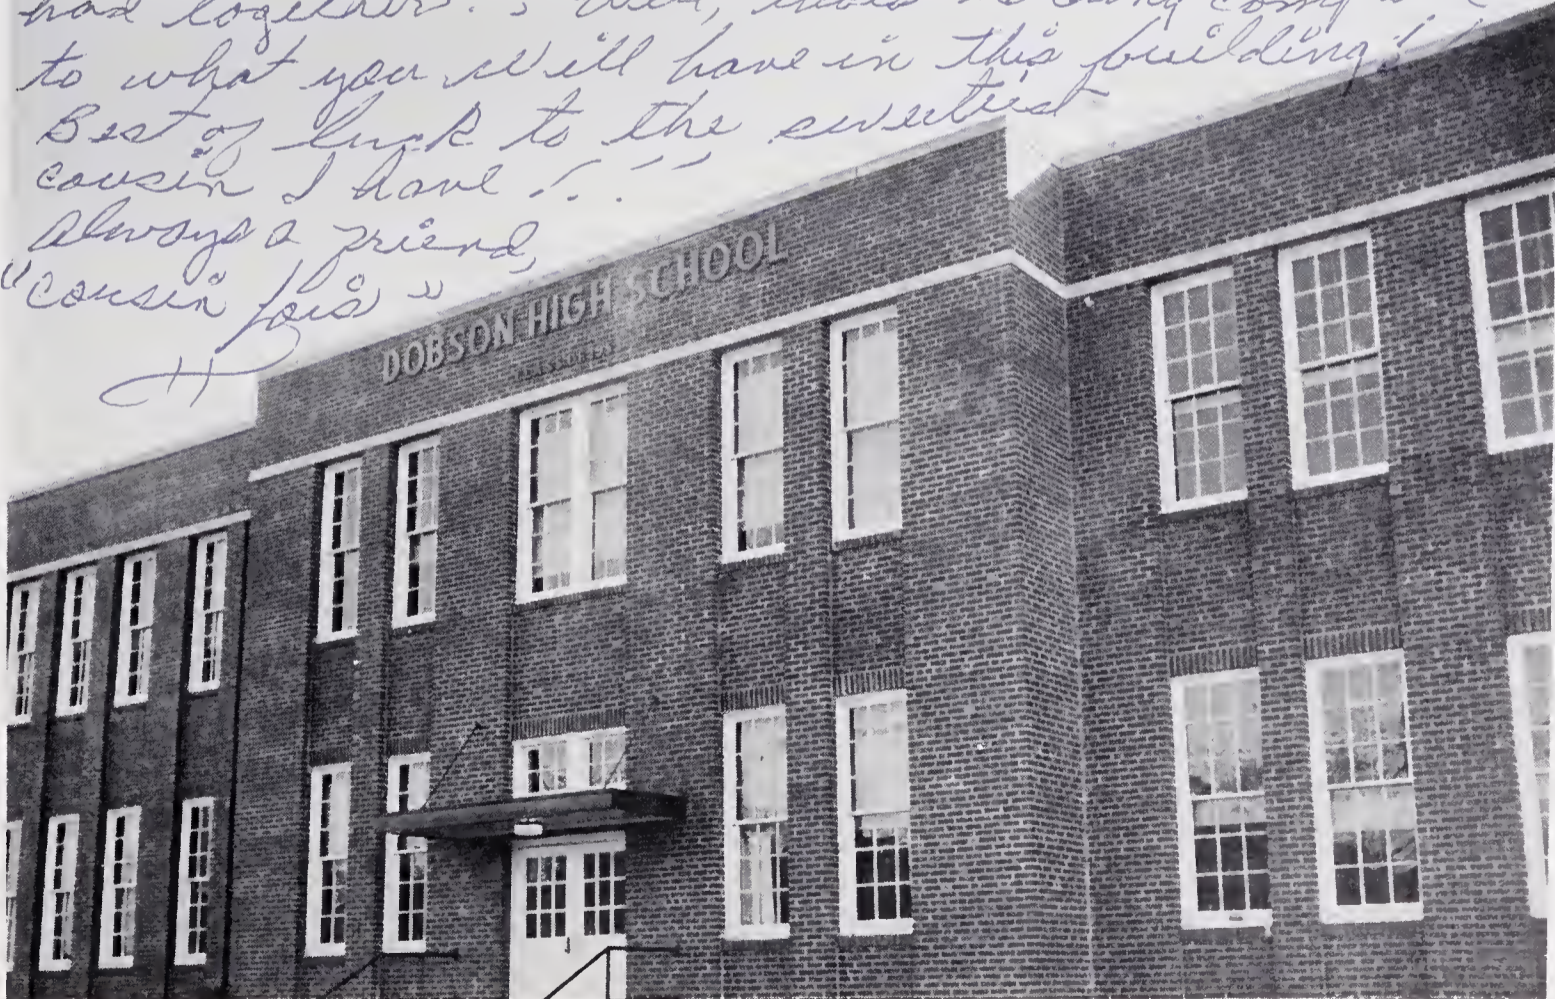 had together. Well,
to what you will have in this building!
Best of luck to the sweetest
cousin I have!!!
Always a friend,
"Cousin Lois"
DOBSON HIGH SCHOOL